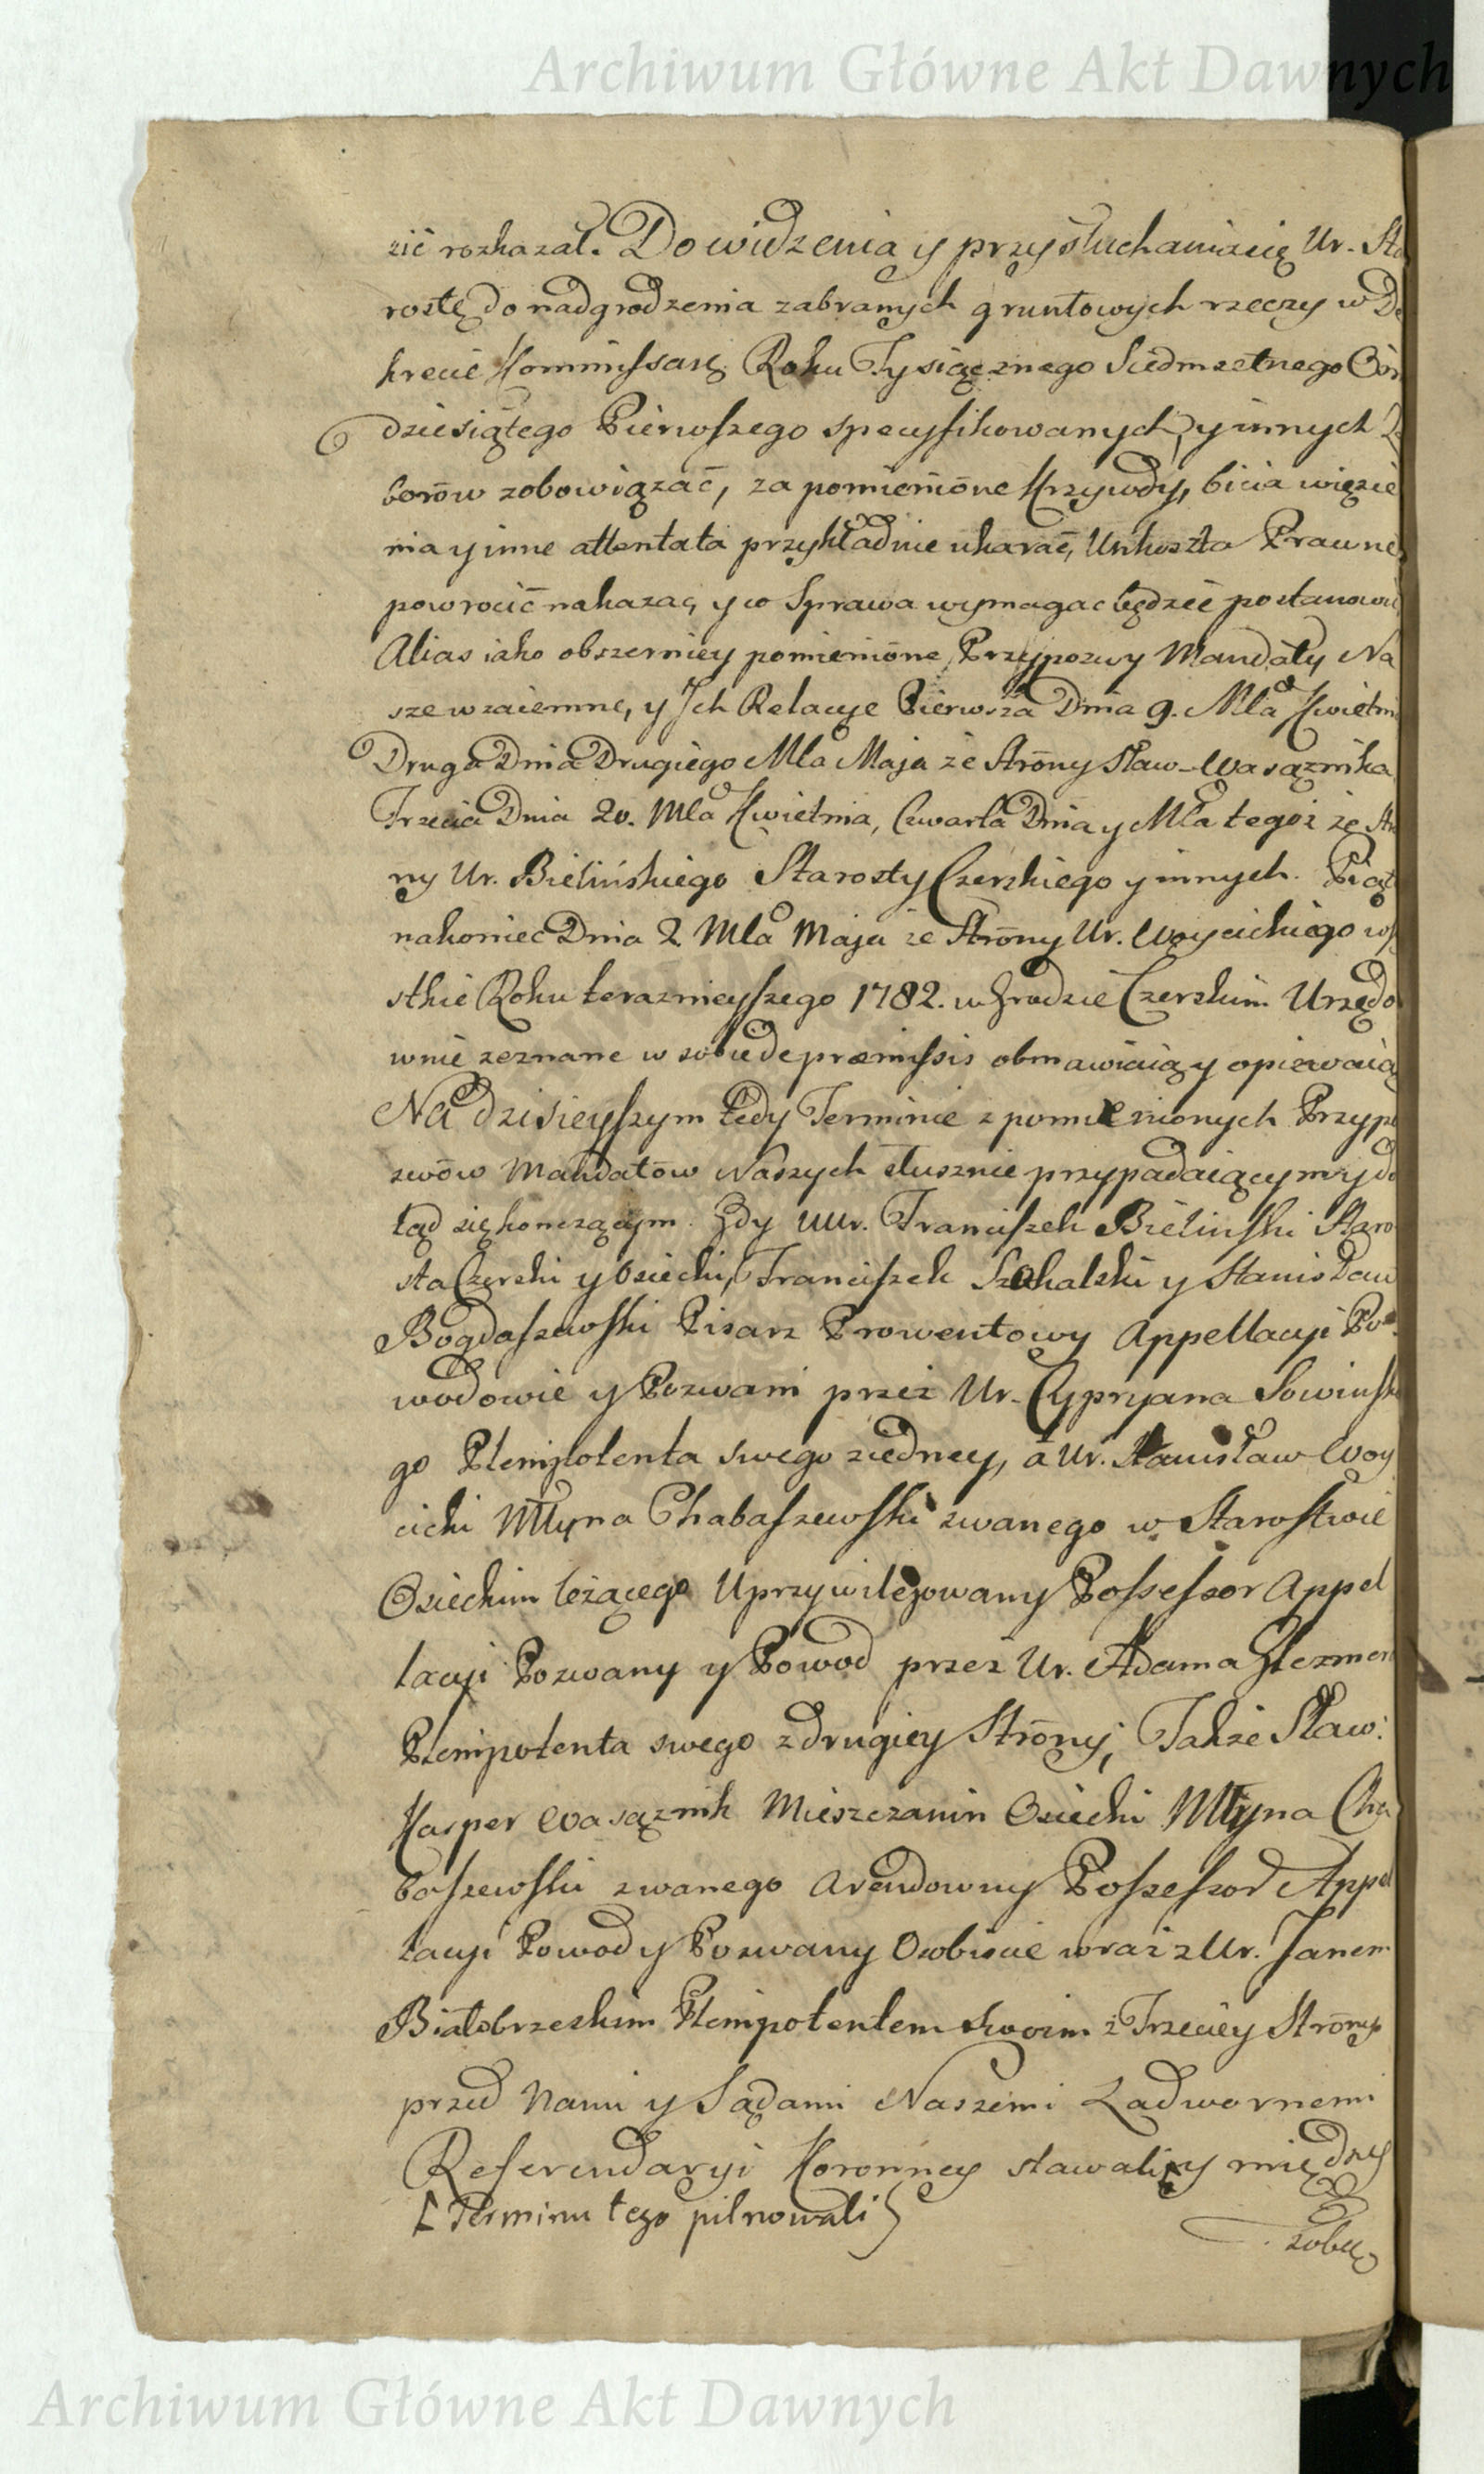 Archiwum Główne Akt Dawnych
zić rozkazał. Do widzenia y przysłuchania się Ur. Sta
rostę do nadgrodzenia zabranych gruntowych rzeczy w De
krecie Kommissarż. Roku Tysiącznego Siedmsetnego Ośm
dziesiątego Pierwszego specyfikowanych, y innych Za
borów zobowiązać, za pomienione Krzywdy, bicia więzie
nia y inne attentata przykładnie ukarać, Unkoszta Prawne
powrocić nakazać, y co Sprawa wymagac będzie postanowić
Alias iako obszerniey pomienione Przypozwy Mandaty Na
sze wzaiemne, y Ich Relacye Pierwsza Dnia 9. Mca Kwietnia
Druga Dnia Drugiego Mca Maja ze Strony Sław- Wasąznika
Trzecia Dnia 20. Mca Kwietnia, Czwarta Dnia y Mca tegoż ze Stro
ny Ur. Bielińskiego Starosty Czerskiego y innych. Piąta
nakoniec Dnia 2. Mca Maja ze Strony Ur. Woycickiego wszy
stkie Roku terazniejszego 1782. w Grodzie Czerskim Urzędo
wnie zeznane w sobie de præmissis obmawiaią y opiewaią
Na dzisieyszym tedy Terminie z pomienionych Przypo
zwów Mandatów Naszych słusznie przypadaiącym y do
tąd się konczącym. Gdy UUr. Franciszek Bieliński Staro
sta Czerski y Osiecki, Franciszek Szokalski y Stanisław
Bogdaszewski Pisarz Prowentowy Appellacyi Po
wodowie y Pozwani przez Ur. Cypryana Sowinskie
go Plenipotenta swego z iedney, a Ur. Stanisław Woy
cicki Młyna Chabaszewski zwanego w Starostwie
Osieckim leżącego Uprzywilejowany Possessor Appel
lacyi Pozwany y Powod przez Ur. Adama Glezmera
Plenipotenta swego z drugiey Strony; Takze Sław:
Kasper Wasąznik Mieszczanin Osiecki Młyna Cha
baszewski zwanego Arendowny Possessor Appel
lacyi Powod y Pozwany Osobiscie wraz z Ur. Janem
Białobrzeskim Plenipotentem swoim z Trzeciey Strony
przed Nami y Sądami Naszemi Zadwornemi
Referendaryi Koronney stawali y między
[Terminu tego pilnowali]
sobą
Archiwum Główne Akt Dawnych